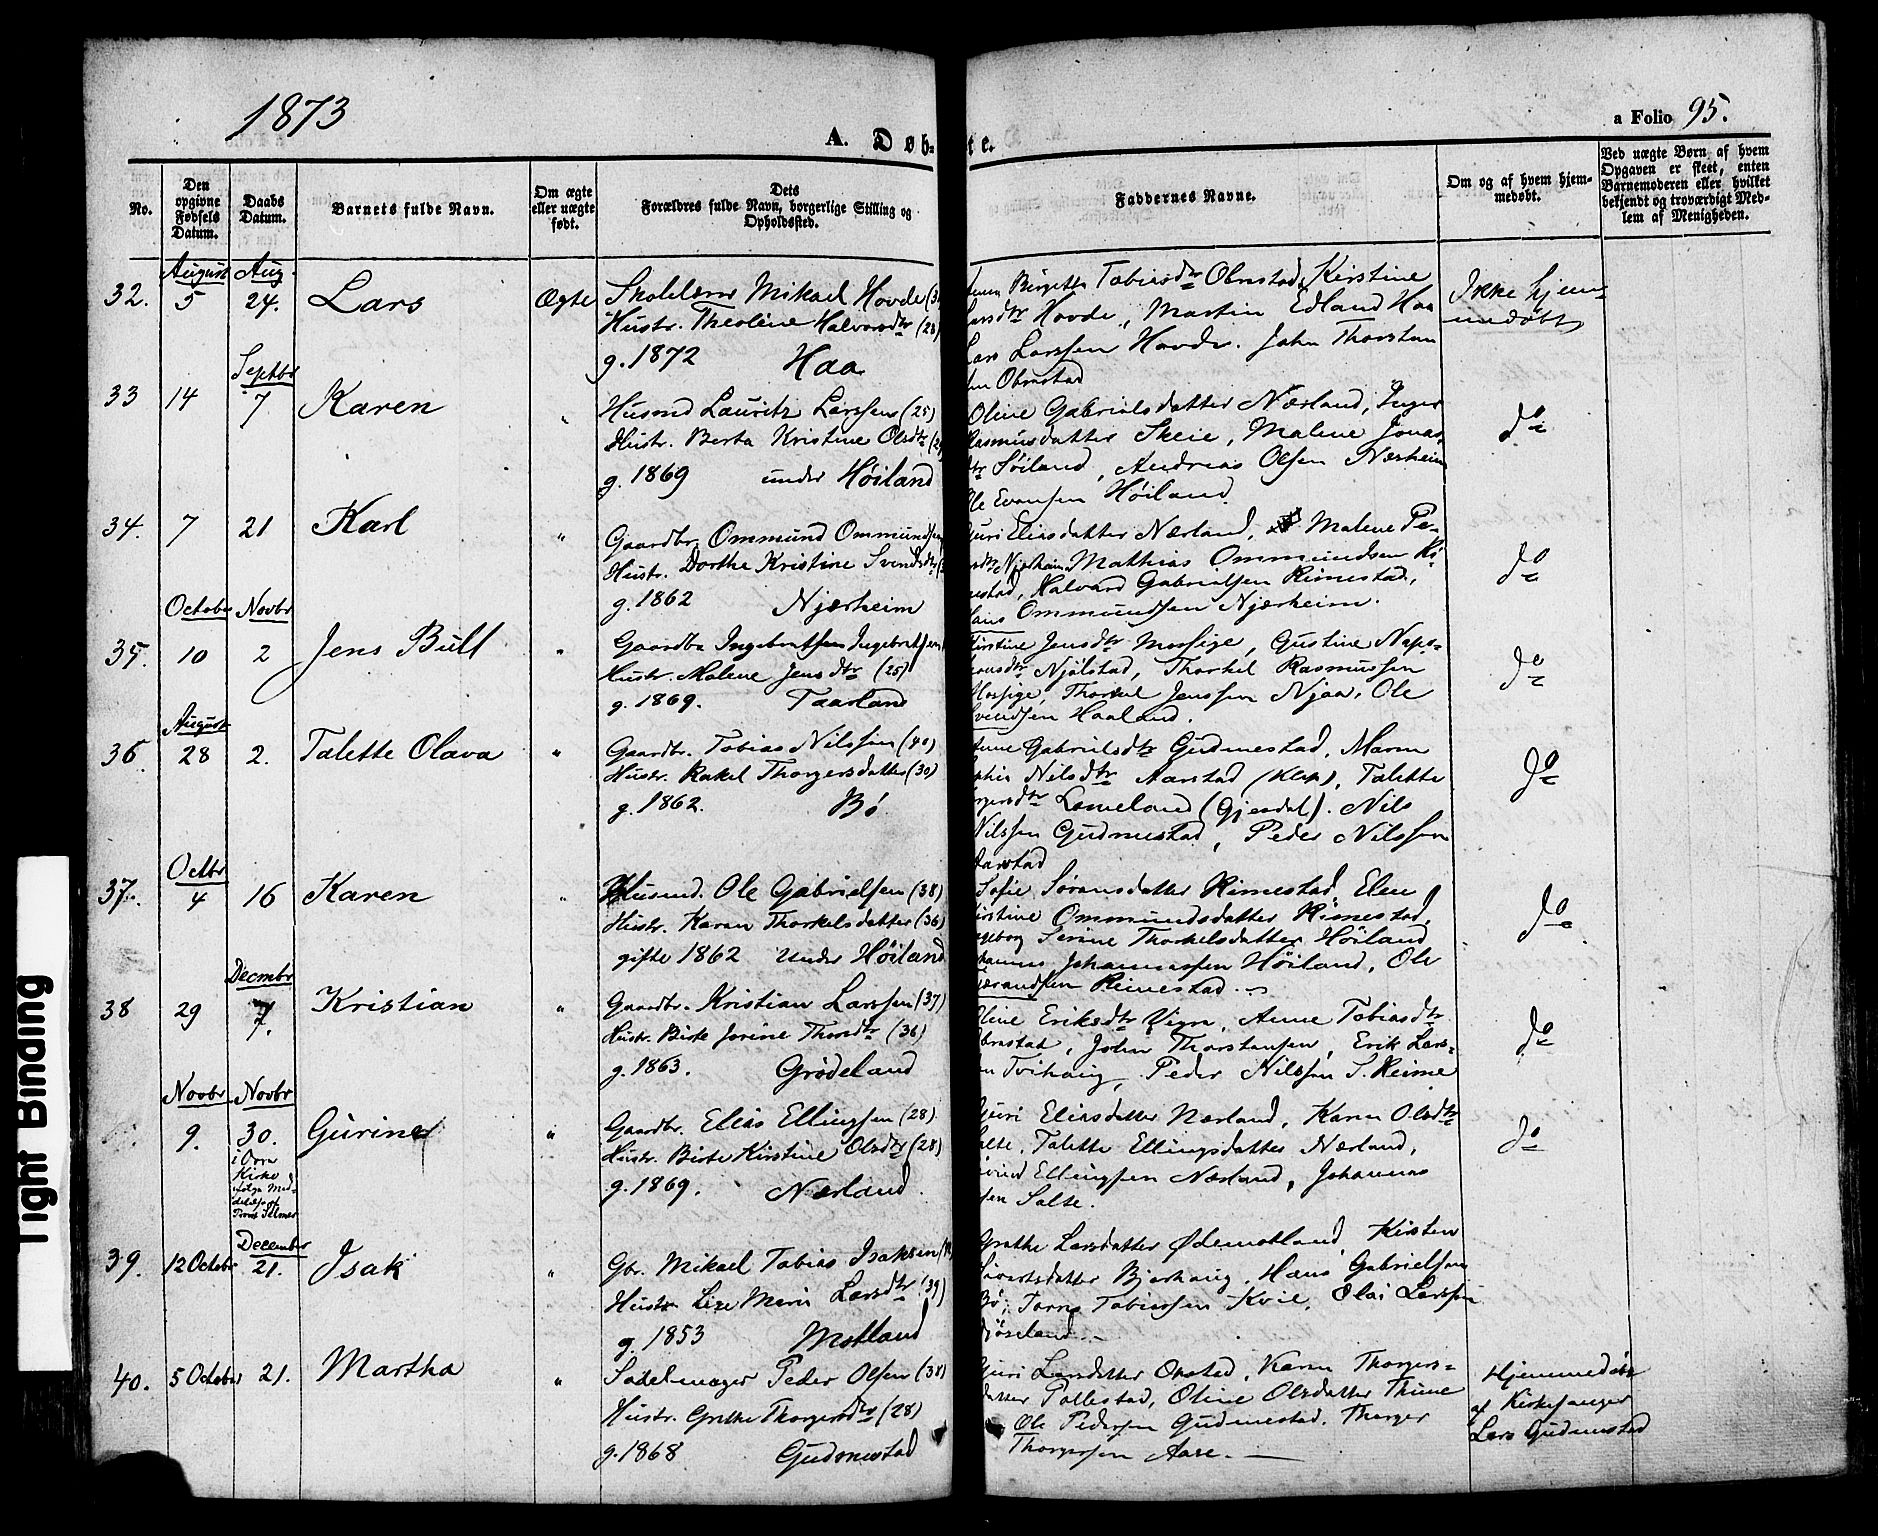 1873
A. Døb-
te.
a Folio 95.
No.
Den opgivne Fødsels Datum.
Daabs Datum.
Barnets fulde Navn.
Om ægte eller uægte født.
Dets Forældres fulde Navn, borgerlige Stilling og Opholdssted.
Faddernes Navne.
Om og af hvem hjem-
medøbt.
Ved uægte Børn af hvem
Opgaven er skeet, enten
Barnemoderen eller hvilket
bekjendt og troværdigt Med-
lem af Menigheden.
August Aug
32. 5 24. Lars Ægte Skolelærer Mikael Hovde
Hustr. Theoline Halvorsdtr (28)
g. 1872 Haa
Birgette Tobiasdtr Obrestad, Kirstine
Larsdtr Hovde, Martin Edland Haa
Lars Larssen Hovde. John Thorstein
sen Obrestad
Ikke hjem-
medøbt
Septbr
33 14 7 Karen " Husmd Lauritz Larssen (25)
Hustr. Berta Kristine Olsdtr
g. 1869 under Høiland
Oline Gabrielsdatter Nærland, Inger
Rasmusdatter Skeie, Malene Jonas
dtr Søiland, Andreas Olsen Nærheim
Ole Evensen Høiland
do
34. 7 21 Karl " Gaardbr. Ommund Ommundsen
Hustr. Dorthe Kristine Svendsdtr
g. 1862 Njærheim
Guri Eliasdatter Nærland, Malene Pe-
dersdtr Njærheim Mathias Ommundsen Ri-
mestad, Halvard Gabrielsen Rimestad,
Hans Ommundsen Njærheim.
do
October Novbr
35. 10 2 Jens Bull " Gaardbr Ingebretsen Ingebretsen
Hustr. Malene Jensdtr (25)
g. 1869. Taarland
Kirstine Jensdtr Mossige, Gustine Napo-
leonsdtr Njølstad, Thorkel Rasmussen
Mossige, Thorkel Jenssen Njaa, Ole
Svendsen Haaland.
do
August
36. 28 2. Talette Olava " Gaardbr. Tobias Nilssen (40)
Hustr. Rakel Thorgersdatter (30)
g. 1862. Bø
Anne Gabrielsdtr Gudmestad, Maren
Sophie Nilsdtr Aarstad (Klep), Talette
Thorgersdtr Lomeland (Gjesdal). Nils
Nilssen Gudmestad, Peder Nilssen
Aarstad
do
Octbr
37. 4 16 Karen " Husmd. Ole Gabrielsen (38)
Hustr. Karen Thorkelsdatter (36)
gifte 1862 under Høiland
Sofie Sørensdatter Rimestad, Elen
Kirstine Ommundsdatter Rimestad,
Ingeborg Serine Thorkelsdatter Høiland
Johannes Johannessen Høiland, Ole
Rimestad.
do
Decembr
38 29 7. Kristian " Gaardbr. Kristian Larssen (37)
Hustr. Birte Jorine Thordtr (36)
g. 1863. Grødeland
Oline Eriksdtr Vigre, Anne Tobiasdtr
Obrestad, John Thorstensen, Erik Lars-
sen Tvihaug, Peder Nilssen S. Reime
do
Novbr Novbr
9. 30. Gurine " Gaardbr. Elias Ellingsen (28)
i Orre
Kirke
ifølge Med-
delelse af
Provst
Hustr. Birte Kirstine Olsdtr (28)
g. 1869. Nærland.
Guri Eliasdatter Nærland, Karen Olsdtr
Salte, Talette Ellingsdatter Nærland,
Eivind Ellingsen Nærland, Johannes
sen Salte.
do
December
39. 12 Octobr 21. Isak " Gbr. Mikael Tobias Isaksen
Hustr Lise Marie Larsdtr (39)
g. 1853 Motland
Grethe Larsdatter Ødemotland, Kirsten
Sivertsdatter Bjerhaug, Hans Gabrielsen
Bø, Tobiassen Kvie, Olai Larssen
Njøseland.
40. 5 October 21. Martha " Sadelmager Peder Olsen (38)
Hustr. Grethe Thorgersdtr (28)
g. 1868 Gudmestad
Guri Larsdatter Obrestad, Karen Thorgers-
datter Pollestad, Oline Olsdatter Thime
Ole Pedersen Gudmestad, Thorger
Thorgersen Aase.
Hjemmedøbt
af Kirkesanger
Lars Gudmestad
Tight Binding